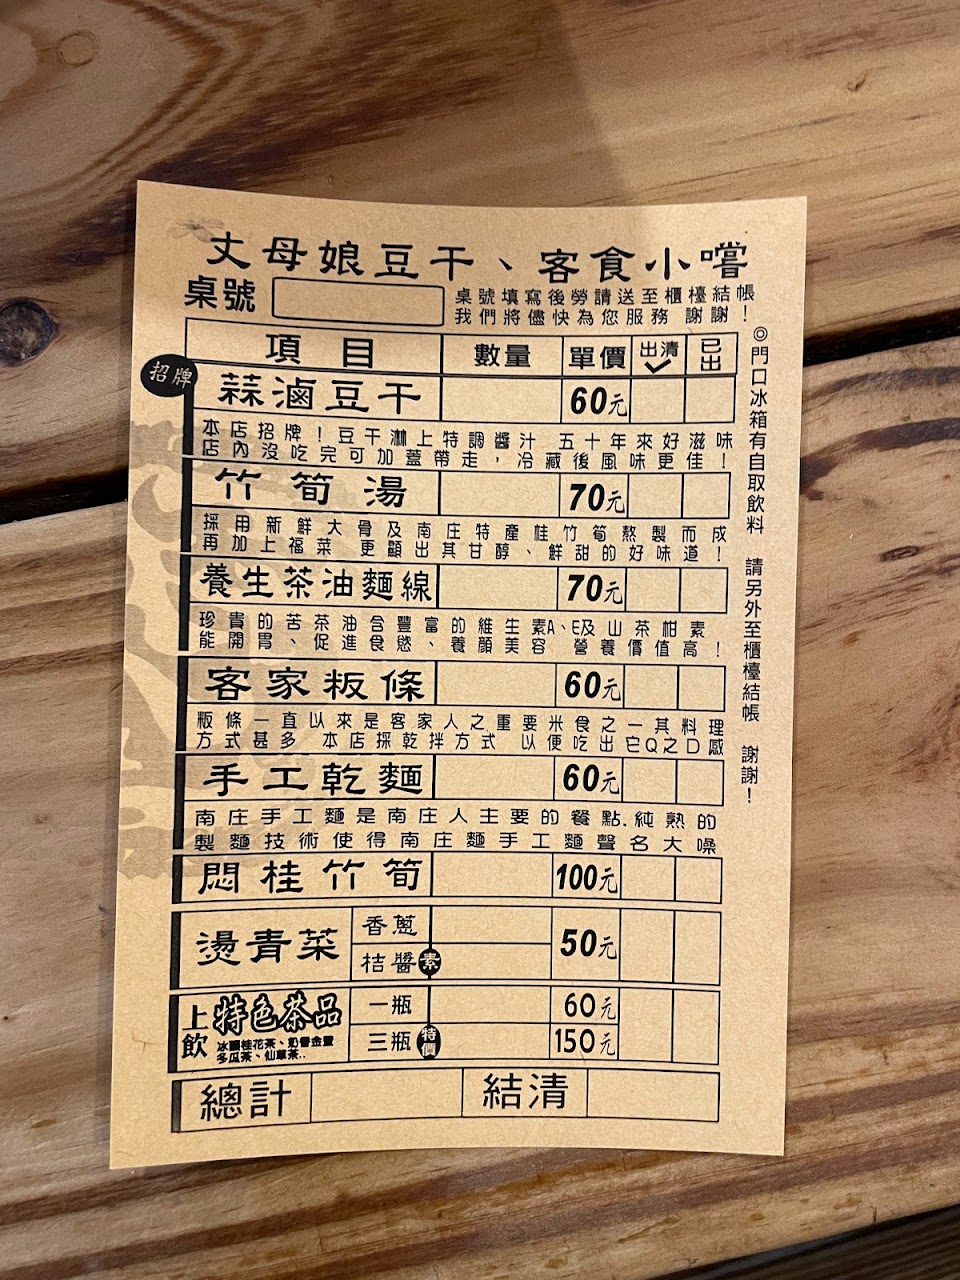 丈母娘豆干、客食小嚐
桌號
桌號填寫後勞請送至櫃檯結帳
我們將儘快為您服務 謝謝！
項目 數量 單價 出清 已出
招牌
蒜滷豆干 60元
本店招牌！豆干淋上特調醬汁 五十年來好滋味
店內沒吃完可加蓋帶走，冷藏後風味更佳！
竹筍湯 70元
採用新鮮大骨及南庄特產桂竹筍熬製而成
再加上福菜 更顯出其甘醇、鮮甜的好味道！
養生茶油麵線 70元
珍貴的苦茶油含豐富的維生素A、E及山茶柑素
能開胃、促進食慾、養顏美容 營養價值高！
客家粄條 60元
粄條一直以來是客家人之重要米食之一其料理
方式甚多 本店採乾拌方式 以便吃出它Q之口感
手工乾麵 60元
南庄手工麵是南庄人主要的餐點.純熟的
製麵技術使得南庄麵手工麵聲名大噪
悶桂竹筍 100元
燙青菜 香蔥 50元
桔醬 素
上飲 特色茶品 一瓶 60元
冰釀桂花茶、奶香金萱
冬瓜茶、仙草茶..
三瓶 特價 150元
總計 結清
◎門口冰箱有自取飲料 請另外至櫃檯結帳 謝謝！